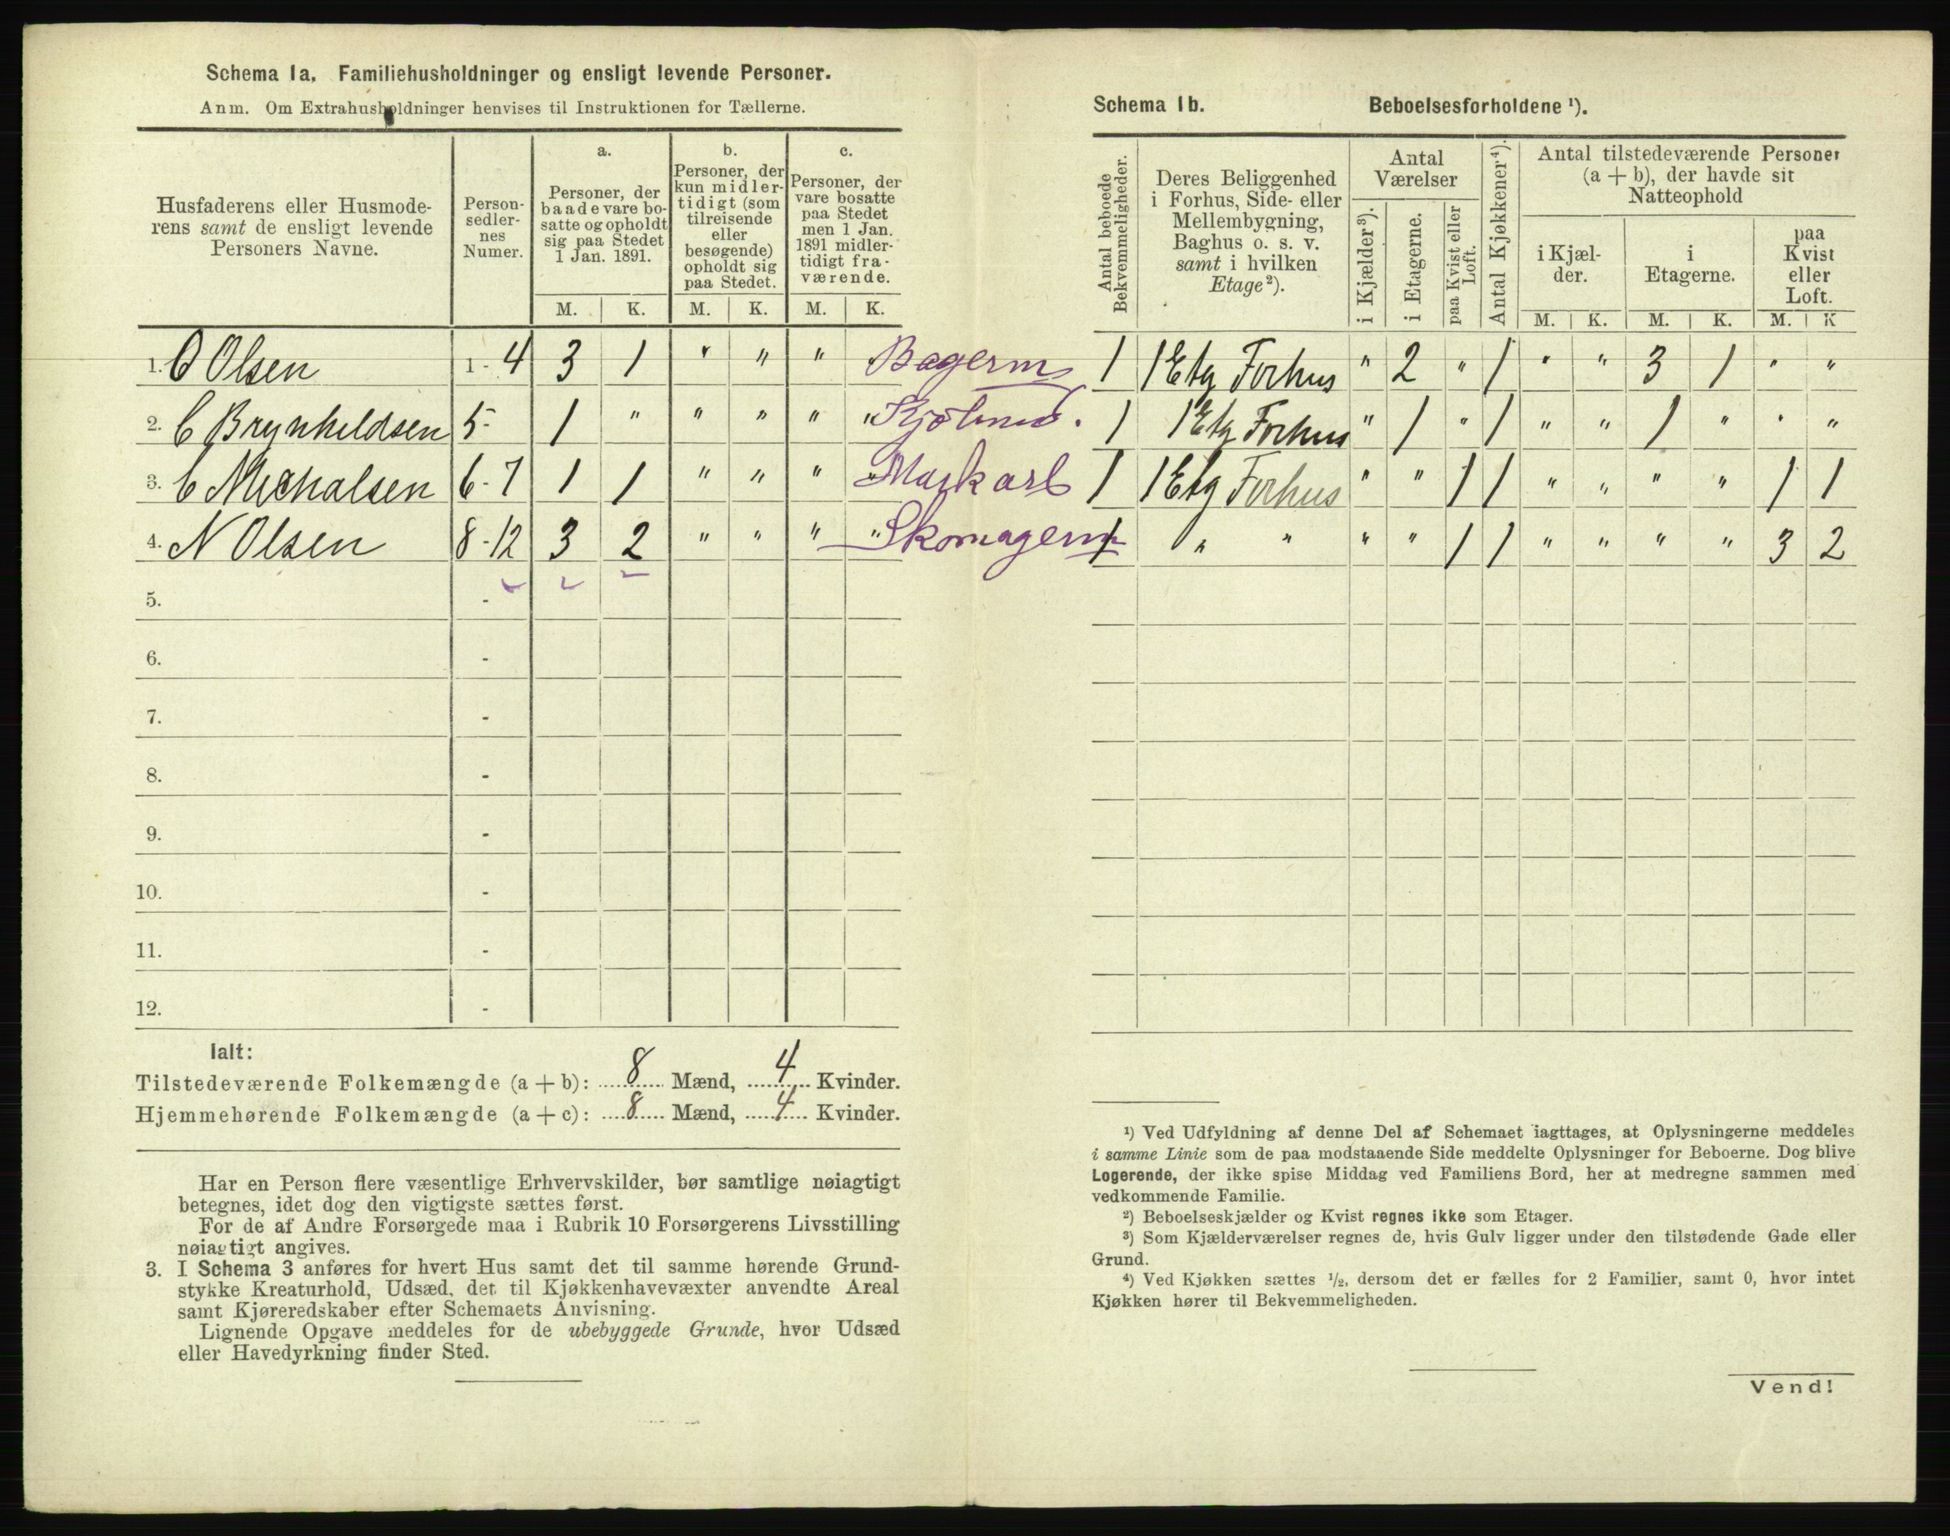 Schema 1a. Familiehusholdninger og ensligt levende Personer.
Anm. Om Extrahusholdninger henvises til Instruktionen for Tællerne.
Husfaderens eller Husmode-
rens samt de ensligt levende
Personers Navne.
Person-
sedler-
nes
Numer.
a.
Personer, der
baade vare bo-
satte og opholdt
sig paa Stedet
1 Jan. 1891.
b.
Personer, der
kun midler-
tidigt (som
tilreisende
eller
besøgende)
opholdt sig
paa Stedet.
c.
Personer, der
vare bosatte
paa Stedet
men 1 Jan.
1891 midler-
tidigt fra-
værende.
M. K. M. K. M. K.
1. O Olsen 1 - 4 3 1 " " " Bagerm
2. C Brynhildsen 5 - 1 " " " " "
3. C Michalsen 6 - 7 1 1 " " " "
4. N Olsen 8 - 12 3 2 " " " " Skomagerm
5. -
6. -
7. -
8. -
9. -
10. -
11. -
12. -
Ialt:
Tilstedeværende Folkemængde (a + b): 8 Mænd, 4 Kvinder.
Hjemmehørende Folkemængde (a + c): 8 Mænd, 4 Kvinder.
Har en Person flere væsentlige Erhvervskilder, bør samtlige nøiagtigt
betegnes, idet dog den vigtigste sættes først.
For de af Andre Forsørgede maa i Rubrik 10 Forsørgerens Livsstilling
nøiagtigt angives.
3. I Schema 3 anføres for hvert Hus samt det til samme hørende Grund-
stykke Kreaturhold, Udsæd, det til Kjøkkenhavevæxter anvendte Areal
samt Kjøreredskaber efter Schemaets Anvisning.
Lignende Opgave meddeles for de ubebyggede Grunde, hvor Udsæd
eller Havedyrkning finder Sted.
Schema 1b. Beboelsesforholdene ¹).
Antal beboede
Bekvemmeligheder.
Deres Beliggenhed
i Forhus, Side- eller
Mellembygning,
Baghus o. s. v.
samt i hvilken
Etage²).
Antal
Værelser
i Kjælder³).
i Etagerne.
paa Kvist eller
Loft.
Antal Kjøkkener⁴).
Antal tilstedeværende Personer
(a + b), der havde sit
Natteophold
i Kjæl-
der.
i
Etagerne.
paa
Kvist
eller
Loft.
M. K. M. K. M. K
1 1 Etg Forhus " 2 " 1 " " 3 1 " "
1 1 Etg Forhus " 1 " 1 " " 1 " " "
1 1 Etg Forhus " " 1 1 " " " " 1 1
1 " " " " 1 1 " " " " 3 2
¹) Ved Udfyldning af denne Del af Schemaet iagttages, at Oplysningerne meddeles
i samme Linie som de paa modstaaende Side meddelte Oplysninger for Beboerne. Dog blive
Logerende, der ikke spise Middag ved Familiens Bord, her at medregne sammen med
vedkommende Familie.
²) Beboelseskjælder og Kvist regnes ikke som Etager.
³) Som Kjælderværelser regnes de, hvis Gulv ligger under den tilstødende Gade eller
Grund.
⁴) Ved Kjøkken sættes ½, dersom det er fælles for 2 Familier, samt 0, hvor intet
Kjøkken hører til Bekvemmeligheden.
Vend!